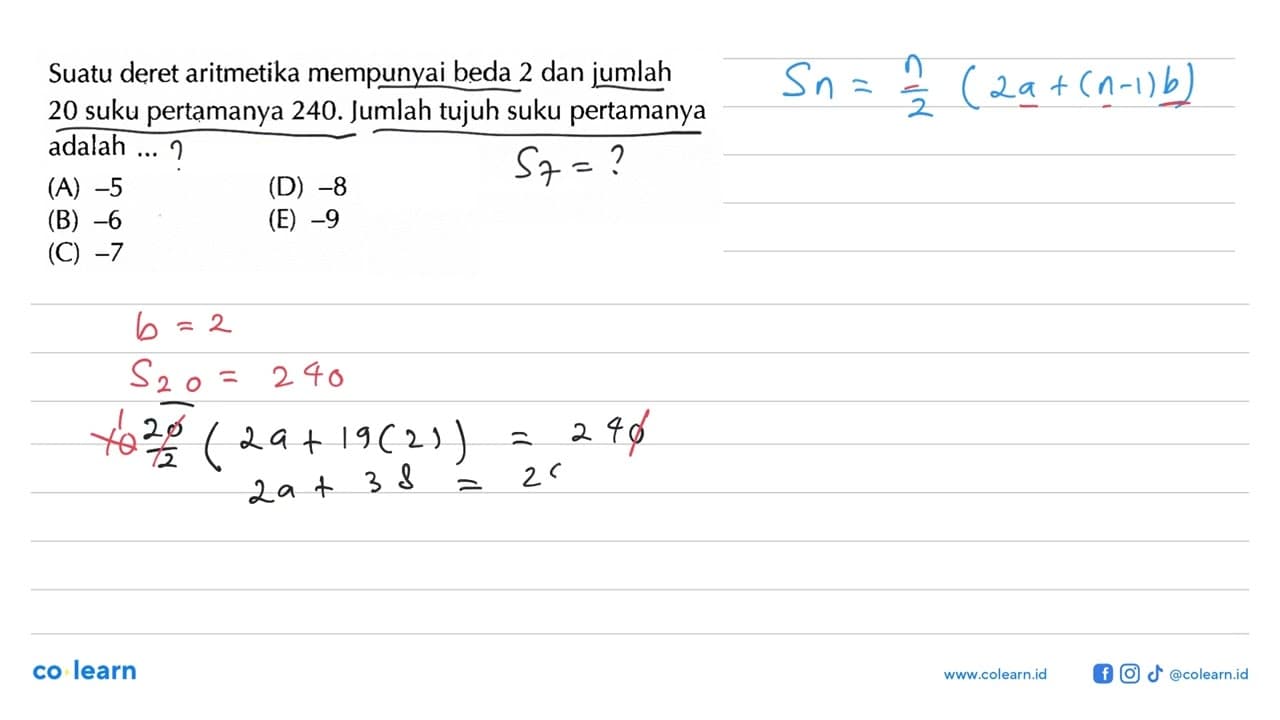 Suatu deret aritmetika mempunyai beda 2 dan jumlah
20 suku pertamanya 240. Jumlah tujuh suku pertamanya
adalah ... ?
(A) –5
(D) –8
(B) –6
(E) –9
(C) –7
S7 = ?
Sn = n/2 (2a + (n-1) b)
b = 2
S20 = 240
1
10 20/2 (2a + 19(2)) = 240
2a + 38 = 2
co learn
www.colearn.id
@colearn.id